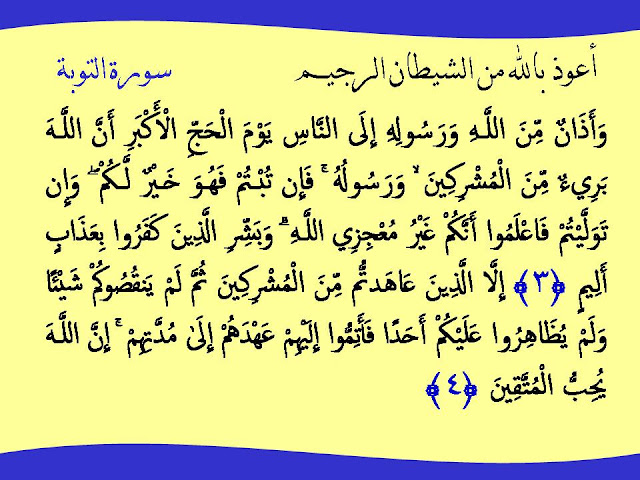 أعوذ بالله من الشيطان الرجيم سورة التوبة
وَأَذَانٌ مِّنَ اللَّهِ وَرَسُولِهِ إِلَى النَّاسِ يَوْمَ الْحَجِّ الْأَكْبَرِ أَنَّ اللَّهَ
بَرِيءٌ مِّنَ الْمُشْرِكِينَ ۙ وَرَسُولُهُ ۚ فَإِن تُبْتُمْ فَهُوَ خَيْرٌ لَّكُمْ ۖ وَإِن
تَوَلَّيْتُمْ فَاعْلَمُوا أَنَّكُمْ غَيْرُ مُعْجِزِي اللَّهِ ۗ وَبَشِّرِ الَّذِينَ كَفَرُوا بِعَذَابٍ
أَلِيمٍ ﴿٣﴾ إِلَّا الَّذِينَ عَاهَدتُّم مِّنَ الْمُشْرِكِينَ ثُمَّ لَمْ يَنقُصُوكُمْ شَيْئًا
وَلَمْ يُظَاهِرُوا عَلَيْكُمْ أَحَدًا فَأَتِمُّوا إِلَيْهِمْ عَهْدَهُمْ إِلَىٰ مُدَّتِهِمْ ۚ إِنَّ اللَّهَ
يُحِبُّ الْمُتَّقِينَ ﴿٤﴾